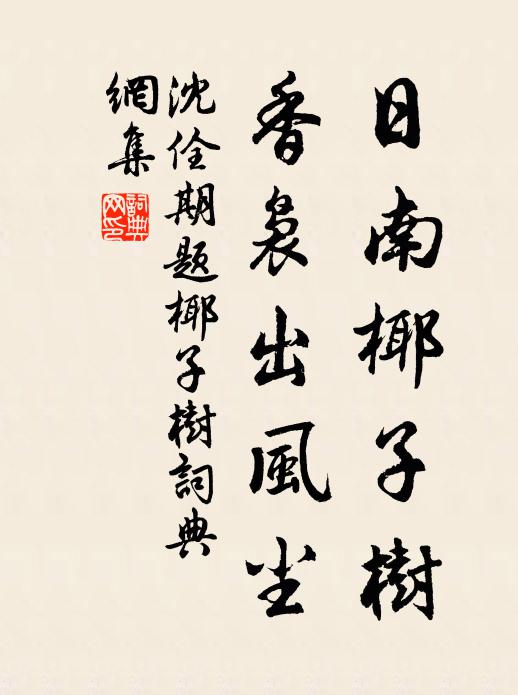 日南椰子樹
香裊出風尘
沈佺期題椰子樹詞典
網集
詞典
网印